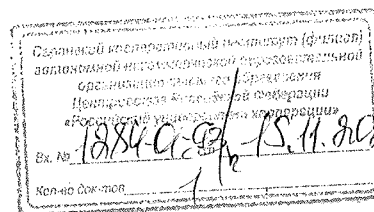 Саранский кооперативный институт (филиал)
автономной некоммерческой образовательной
организации высшего образования
Центросоюза Российской Федерации
«Российский университет кооперации»
Вх. №
15.11.20
Кол-во док-тов